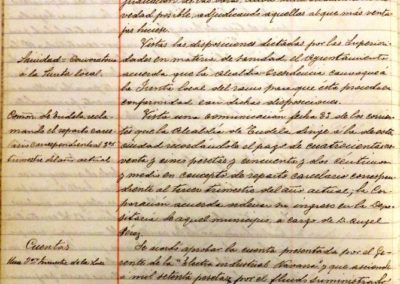 vedad posible, adjudicando aquellas al que más venta
jas hiciese.
Sanidad = Convocatoria
a la Junta local.
Vistas las disposiciones dictadas por la Superiori
dad en materia de sanidad, el Ayuntamiento
acuerda que la Alcaldía-Presidencia convoque a
la Junta local del ramo para que esta proceda en
conformidad con dichas disposiciones.
Común de Tudela recla
mando el reparto carce
lario correspondiente al 3er
trimestre del año actual
Vista una comunicación fecha 23 de los corrien
tes que la Alcaldía de Tudela dirije a la de esta
ciudad recordándole el pago de cuatrocientas no
venta y cinco pesetas y cincuenta y dos céntimos
y medio en concepto de reparto carcelario correspon
diente al tercer trimestre del año actual, la Cor
poración acuerda ordenar su ingreso en la Depo
sitaría de aquel municipio, a cargo de D. Angel
Pérez.
Cuentas
Una 3er trimestre de la Luz
Se acordó aprobar la cuenta presentada por el Ge
rente de la "Electra industrial Navarra" y que asciende
a mil setenta pesetas por el fluido suministrado